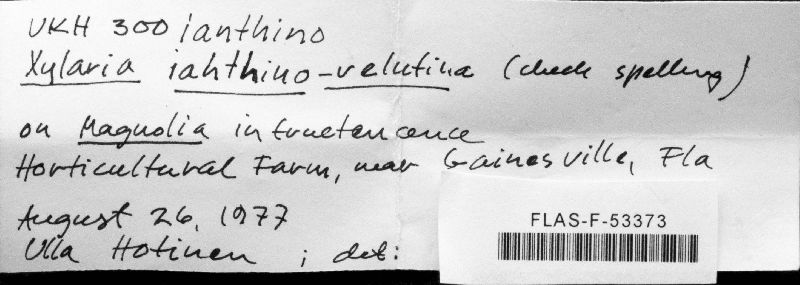 UKH 300 ianthino
Xylaria iahthino-velutina (check spelling)
on Magnolia infructencence
Horticultural Farm, near Gainesville, Fla
August 26, 1977
Ulla Hotinen ; det:
FLAS-F-53373